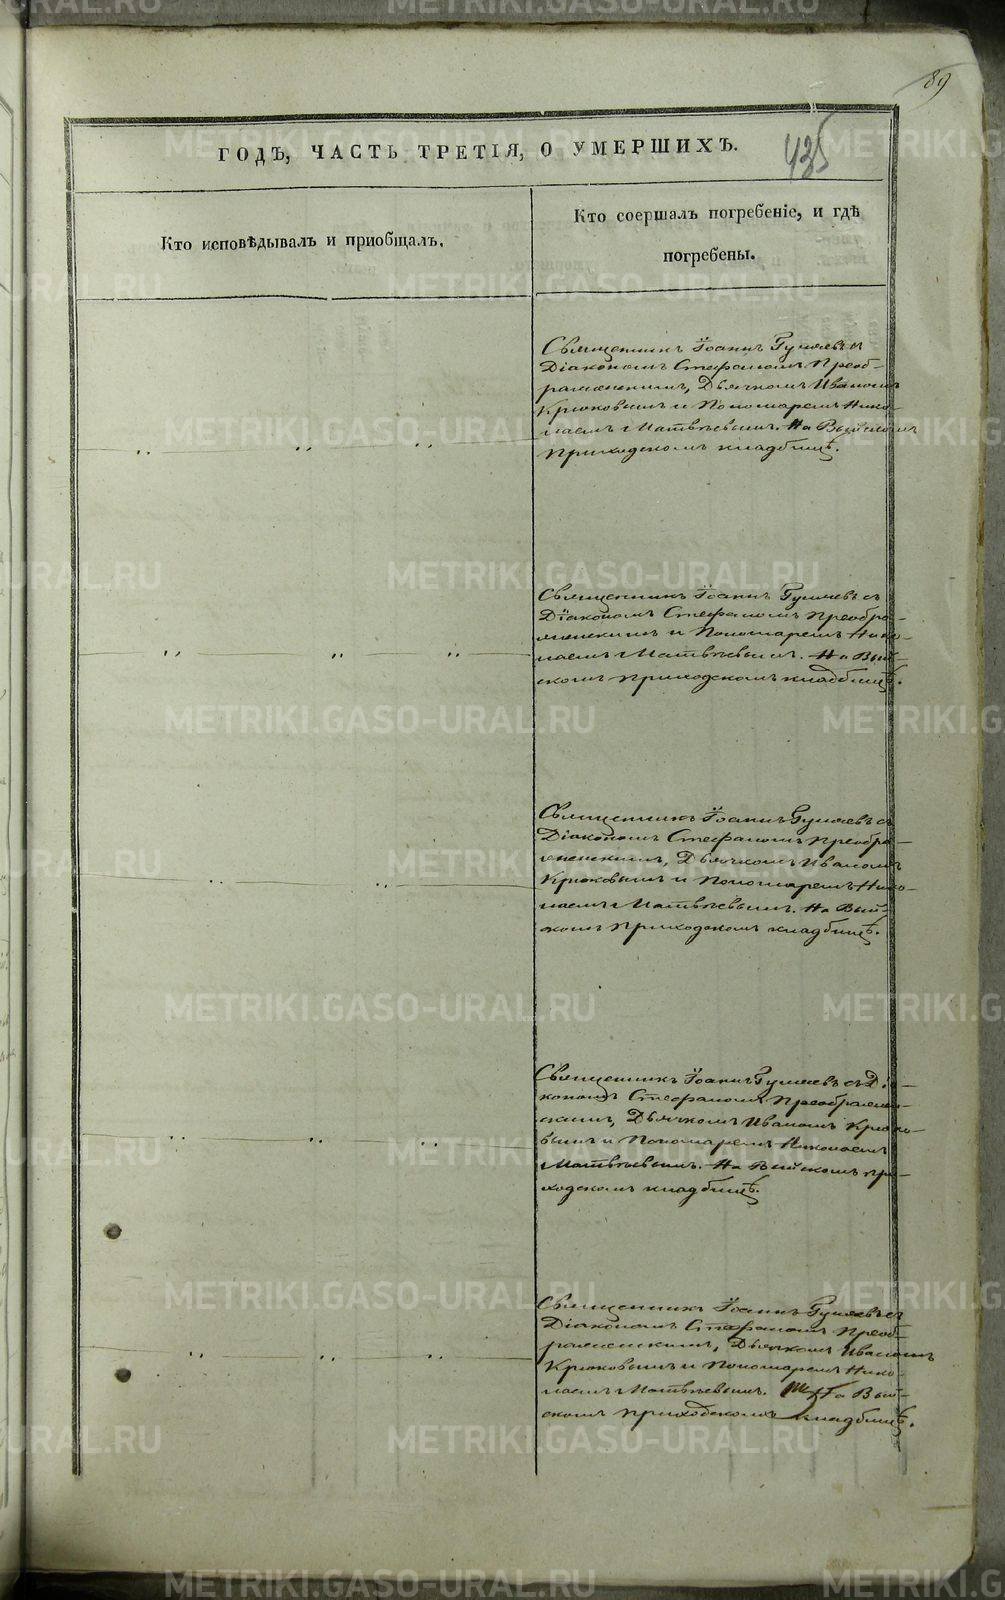 89
ГОДЪ, ЧАСТЬ ТРЕТІЯ, О УМЕРШИХЪ.
435
Кто исповѣдывалъ и приобщалъ.
Кто соершалъ погребеніе, и гдѣ
погребены.
Священникъ Іоаннъ Гуляевъ съ
Діакономъ Стефаномъ Преоб-
раженскимъ, Дьячкомъ Иваномъ
Крюковымъ и Пономаремъ Нико-
лаемъ Матвѣевымъ. На Выйскомъ
приходскомъ кладбищѣ.
Священникъ Іоаннъ Гуляевъ съ
Діакономъ Стефаномъ Преобра-
женскимъ и Пономаремъ Нико-
лаемъ Матвѣевымъ. На Вый-
скомъ приходскомъ кладбищѣ.
Священникъ Іоаннъ Гуляевъ съ
Діакономъ Стефаномъ Преобра-
женскимъ, Дьячкомъ Иваномъ
Крюковымъ и Пономаремъ Нико-
лаемъ Матвѣевымъ. На Вый-
скомъ приходскомъ кладбищѣ.
Священникъ Іоаннъ Гуляевъ съ Ді-
кономъ Стефаномъ Преображен-
скимъ, Дьячкомъ Иваномъ Крюко-
вымъ и Пономаремъ Николаемъ
Матвѣевымъ. На Выйскомъ при-
ходскомъ кладбищѣ.
Священникъ Іоаннъ Гуляевъ съ
Діакономъ Стефаномъ Преоб-
раженскимъ, Дьячкомъ Иваномъ
Крюковымъ и Пономаремъ Нико-
лаемъ Матвѣевымъ. На Вый-
скомъ приходскомъ кладбищѣ.
METRIKI.GASO-URAL.RU